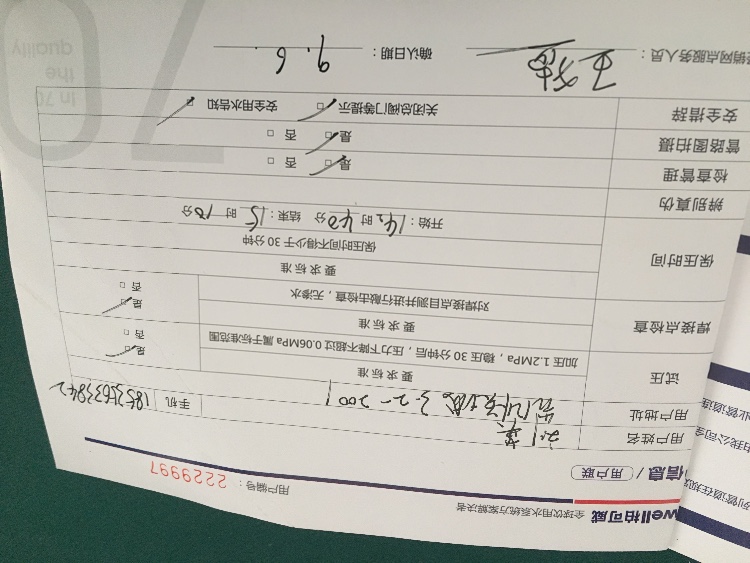 well柏可威 全球饮用水系统方案解决者
信息 / 用户联
用户编号：2229997
用户姓名
用户地址 3-2-2001 手机 18532633842
试压 要求标准
加压 1.2MPa，稳压 30 分钟后，压力下降不超过 0.06MPa 属于标准范围
是 □
否 □
焊接点检查 要求标准
对焊接点目测并进行敲击检查，无渗水
是 □
否 □
保压时间 要求标准
保压时间不得少于 30 分钟
开始：14 时 40 分 结束：15 时 10 分
辨别真伪
检查管理 是 □ 否 □
管路图拍摄 是 □ 否 □
安全措辞 关闭总阀门等提示 □ 安全用水告知 □
销网点服务人员： 确认日期： 9.6.
In 70
the
quality
70